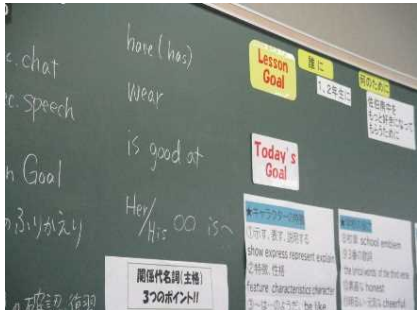 c. chat
c. speech
Goal
ふりかえり
確認
have (has)
wear
is good at
Her/His ○○ is~
関係代名詞(主格)
3つのポイント!!
Lesson
Goal
誰に
1、2年生に
何のために
もっと好きになって
もらうために
Today's
Goal
★キャラクターの特徴
①示す、表す、説明する
show express represent explain
②特徴、性格
feature characteristics character
③~は…のようだ be like
school emblem
the lyrics words of the third verse
honest
cheerful